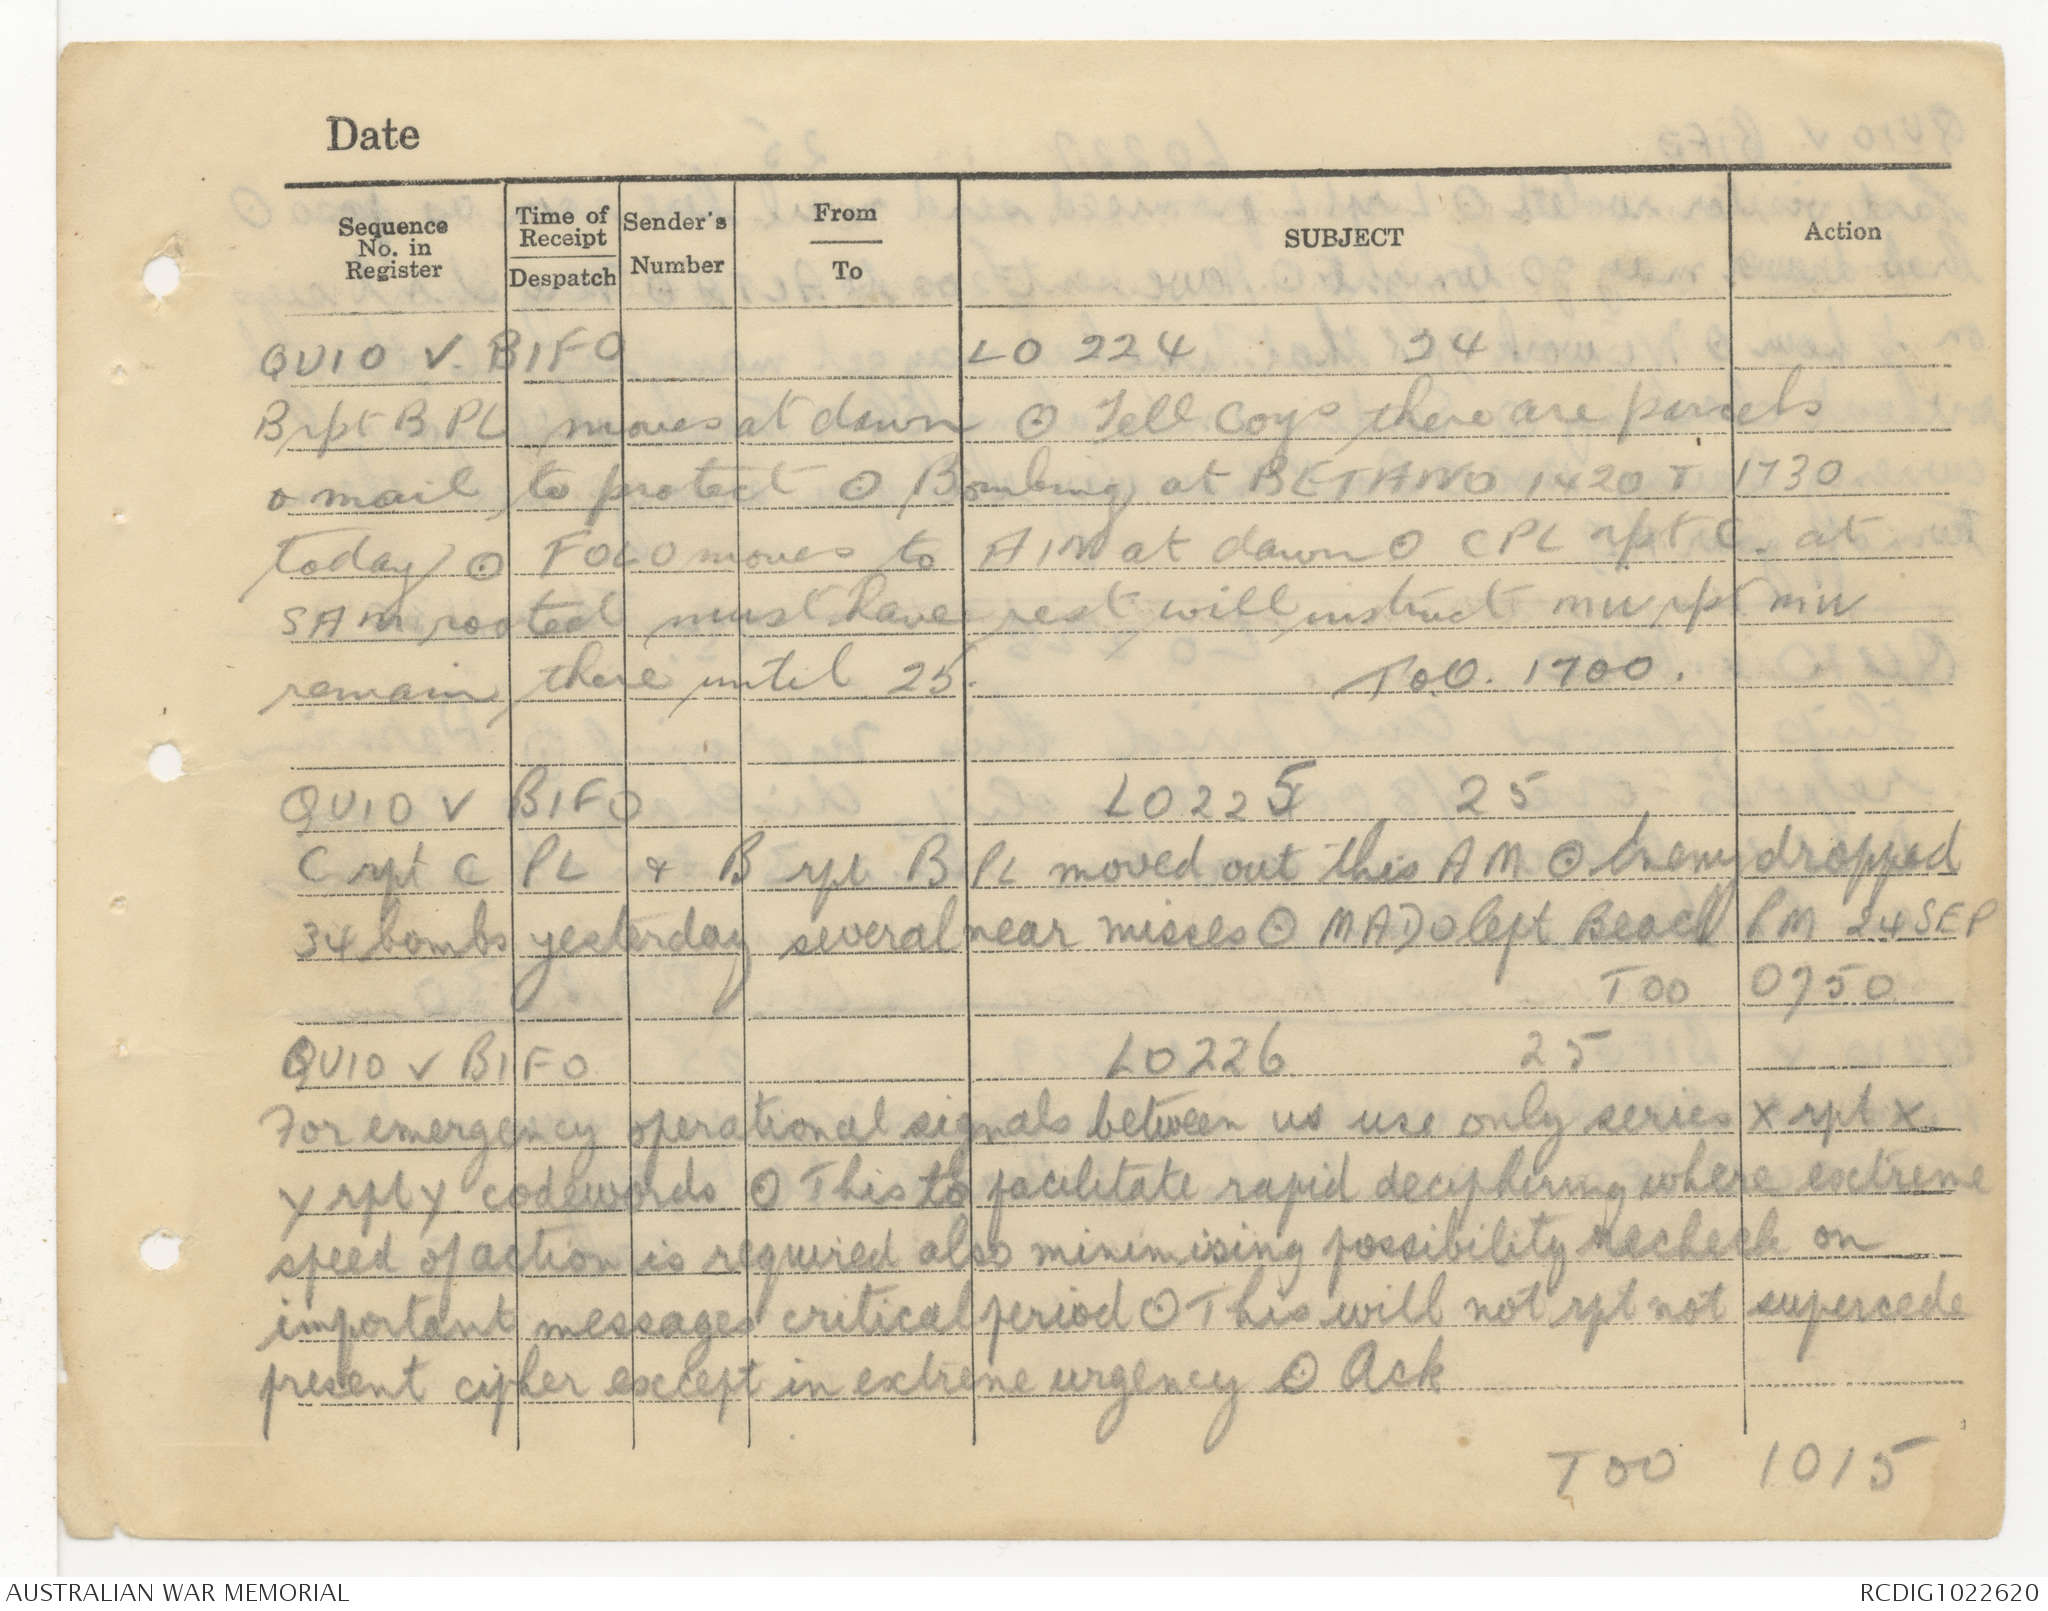 Date
Sequence No. in Register
Time of Receipt
Despatch
Sender's Number
From
To
SUBJECT
Action
QUIO V. BIFO LO 224 24
B rpt B PL moves at dawn ⊙ Tell Coys there are parcels
o mail to protect ⊙ Bombing at BETANO 1420 & 1730
today ⊙ FOLO moves to AIN at dawn ⊙ CPL rpt C. at
SAM rooted must have rest will instruct MW rpt MW
remain there until 25. T.O.O. 1700.
QUIO V BIFO LO225 25
C rpt C PL & B rpt B PL moved out this AM ⊙ Enemy dropped
34 bombs yesterday several near misses ⊙ MADO left Beach PM 24 SEP
TOO 0750
QUIO V BIFO LO226 25
For emergency operational signals between us use only series X rpt X
Y rpt Y codewords ⊙ This to facilitate rapid deciphering where extreme
speed of action is required also minimising possibility necheck on
important messages critical period ⊙ This will not rpt not supercede
present cipher except in extreme urgency ⊙ Ack
TOO 1015
AUSTRALIAN WAR MEMORIAL
RCDIG1022620